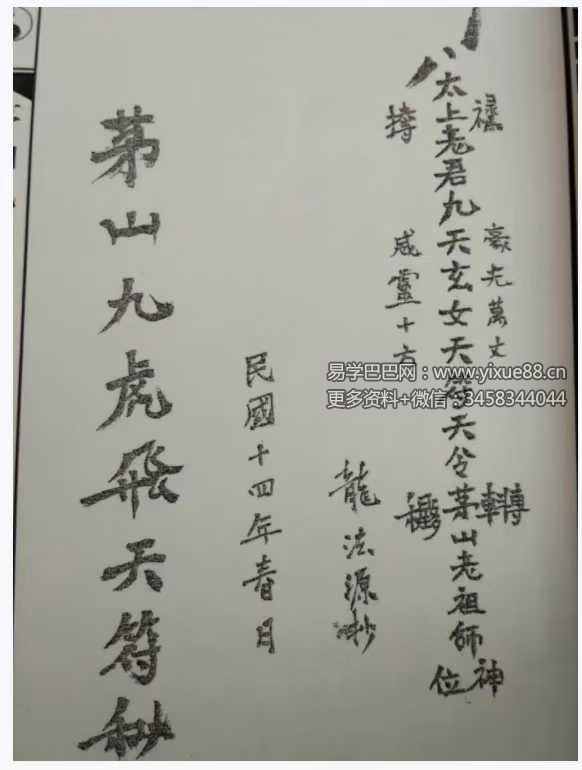 太上老君九天玄女天符天令茅山老祖師神位
豪光萬丈
威靈十方
龍法源抄
民國十四年春日
茅山九虎飛天符秘
易学巴巴网：www.yixue88.cn
更多资料+微信：3458344044